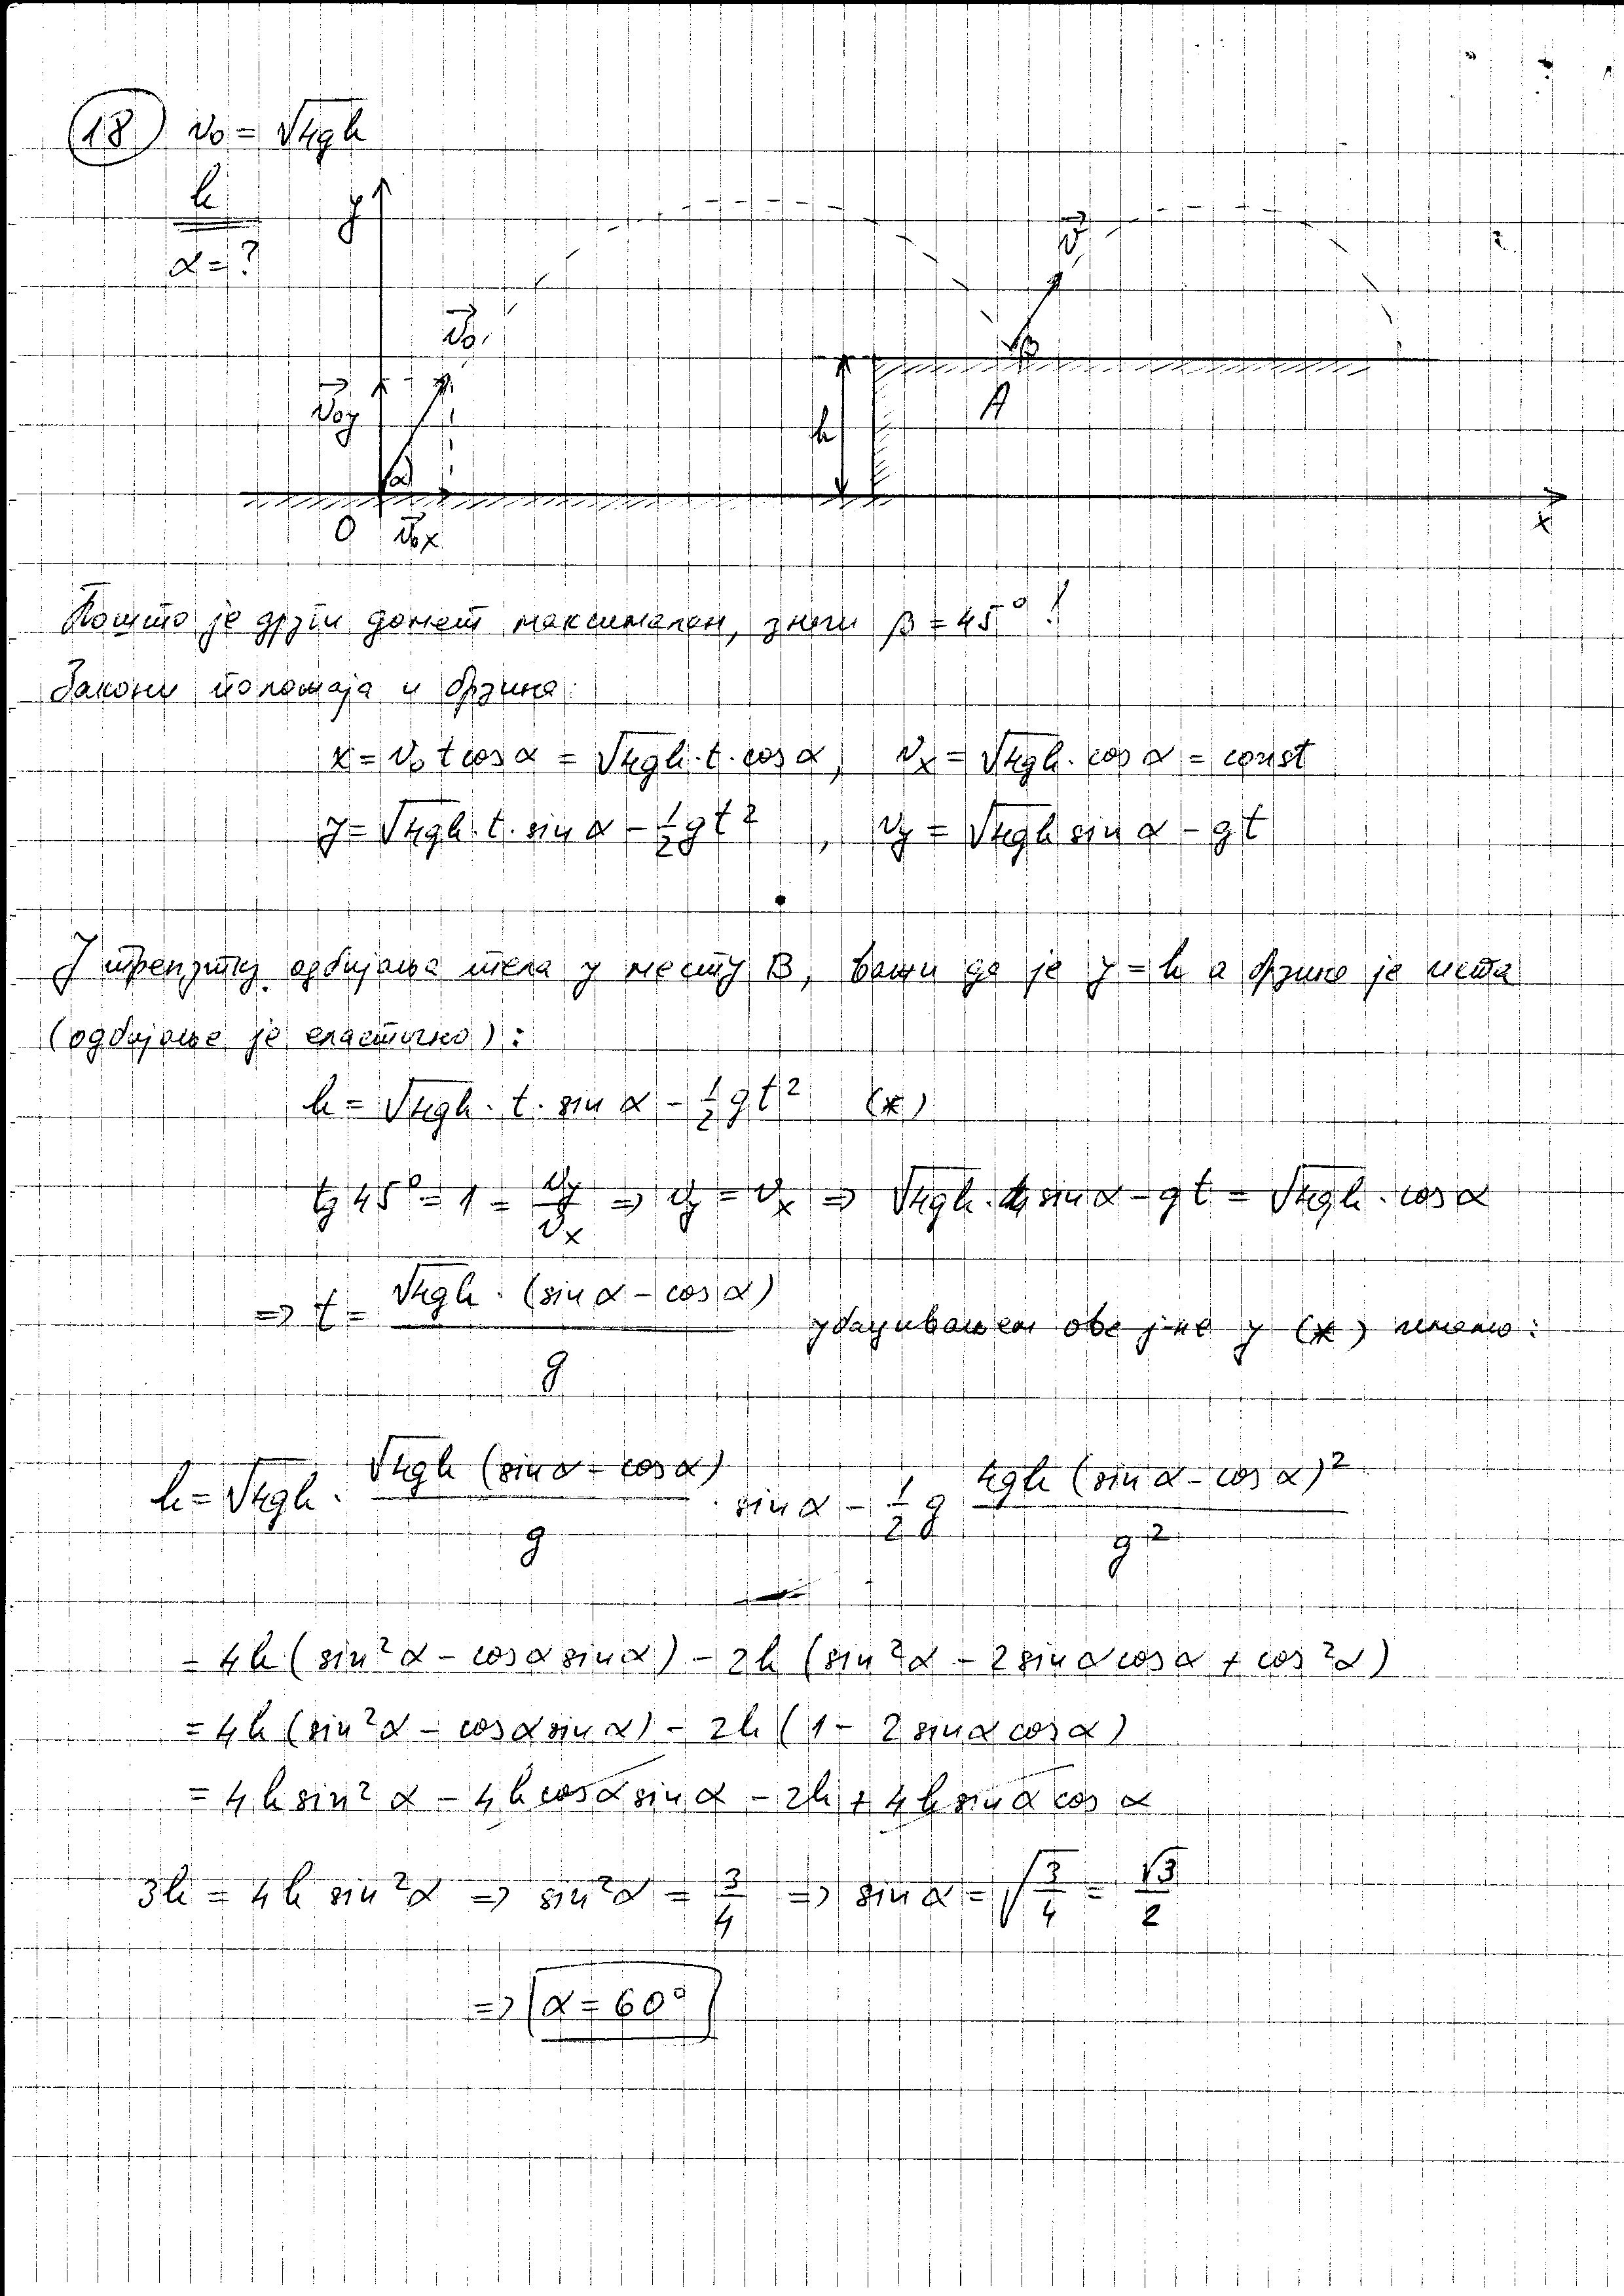 18 v₀ = √4gh
h
α = ?
y
v⃗
v⃗₀
v⃗₀y
α
β
A
h
O v⃗₀x
x
Пошто је други домет максималан, значи β = 45° !
Закони положаја и брзина:
x = v₀ t cos α = √4gh · t · cos α, vₓ = √4gh · cos α = const
y = √4gh · t · sin α − ½ g t² , v_y = √4gh sin α − g t
У тренутку одбијања тела у месту B, важи да је y = h а брзина је иста
(одбијање је еластично) :
h = √4gh · t · sin α − ½ g t² (*)
tg 45° = 1 = v_y / vₓ ⇒ v_y = vₓ ⇒ √4gh · sin α − g t = √4gh · cos α
⇒ t = √4gh · (sin α − cos α) / g убацивањем ове ј-не у (*) имамо :
h = √4gh · √4gh (sin α − cos α) / g · sin α − ½ g 4gh (sin α − cos α)² / g²
= 4h (sin²α − cos α sin α) − 2h (sin²α − 2 sin α cos α + cos²α)
= 4h (sin²α − cos α sin α) − 2h (1 − 2 sin α cos α)
= 4h sin²α − 4h cos α sin α − 2h + 4h sin α cos α
3h = 4h sin²α ⇒ sin²α = 3/4 ⇒ sin α = √3/4 = √3/2
⇒ α = 60°